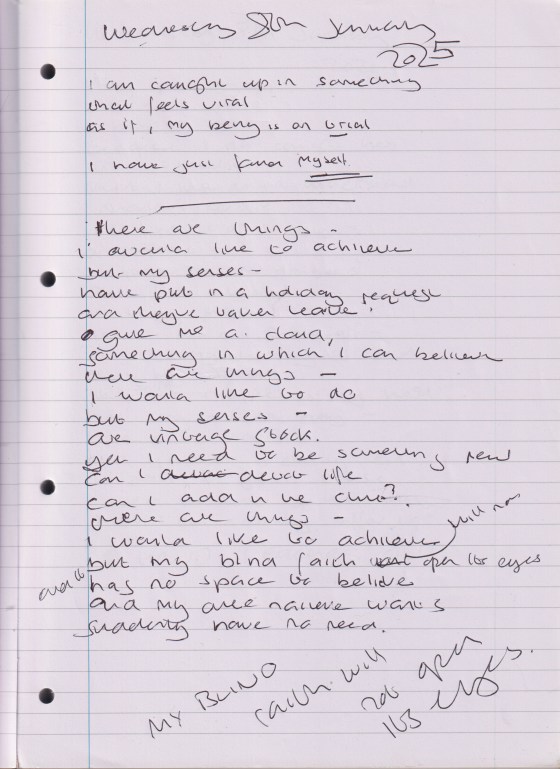 Wednesday 8th January
2025
I am caught up in something
that feels viral
as if, my being is on trial
I have just known myself.
there are things -
I would like to achieve
but my senses -
have put in a holiday request
and they've taken leave.
give me a cloud,
something in which I can believe
there are things -
I would like to do
but my senses -
are vintage stock.
yet I need to be something new
can I devote life
can I add in the
there are things -
I would like to achieve will not
but my blind faith open its eyes
and to has no space to believe
and my wants
suddenly have no need.
MY BLIND
faith will
not open
its eyes.